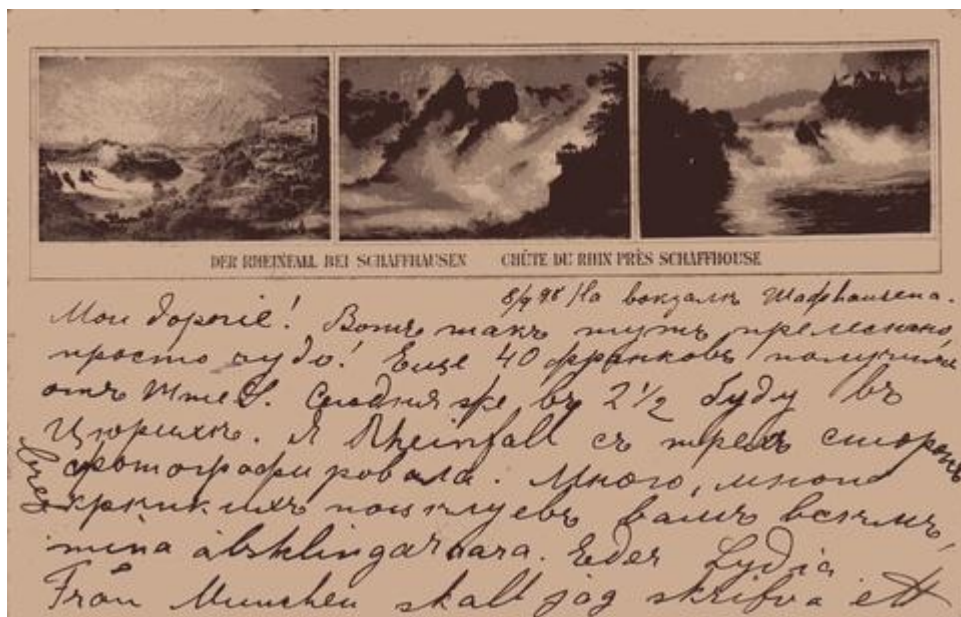 DER RHEINFALL BEI SCHAFFHAUSEN CHÛTE DU RHIN PRÈS SCHAFFHOUSE
8/9 98 На вокзалѣ
Мои дорогіе! Вотъ такъ тутъ прелестно
просто чудо! Еще 40 франковъ получила
отъ Сегодня же въ 2 1/2 буду въ
Цюрихѣ. Я Rheinfall съ трехъ сторонъ
фотографировала. Много, много
крѣпкихъ поцѣлуевъ вамъ всѣмъ,
mina älsklingar Eder Lydia
Från München skall jag skrifva ett